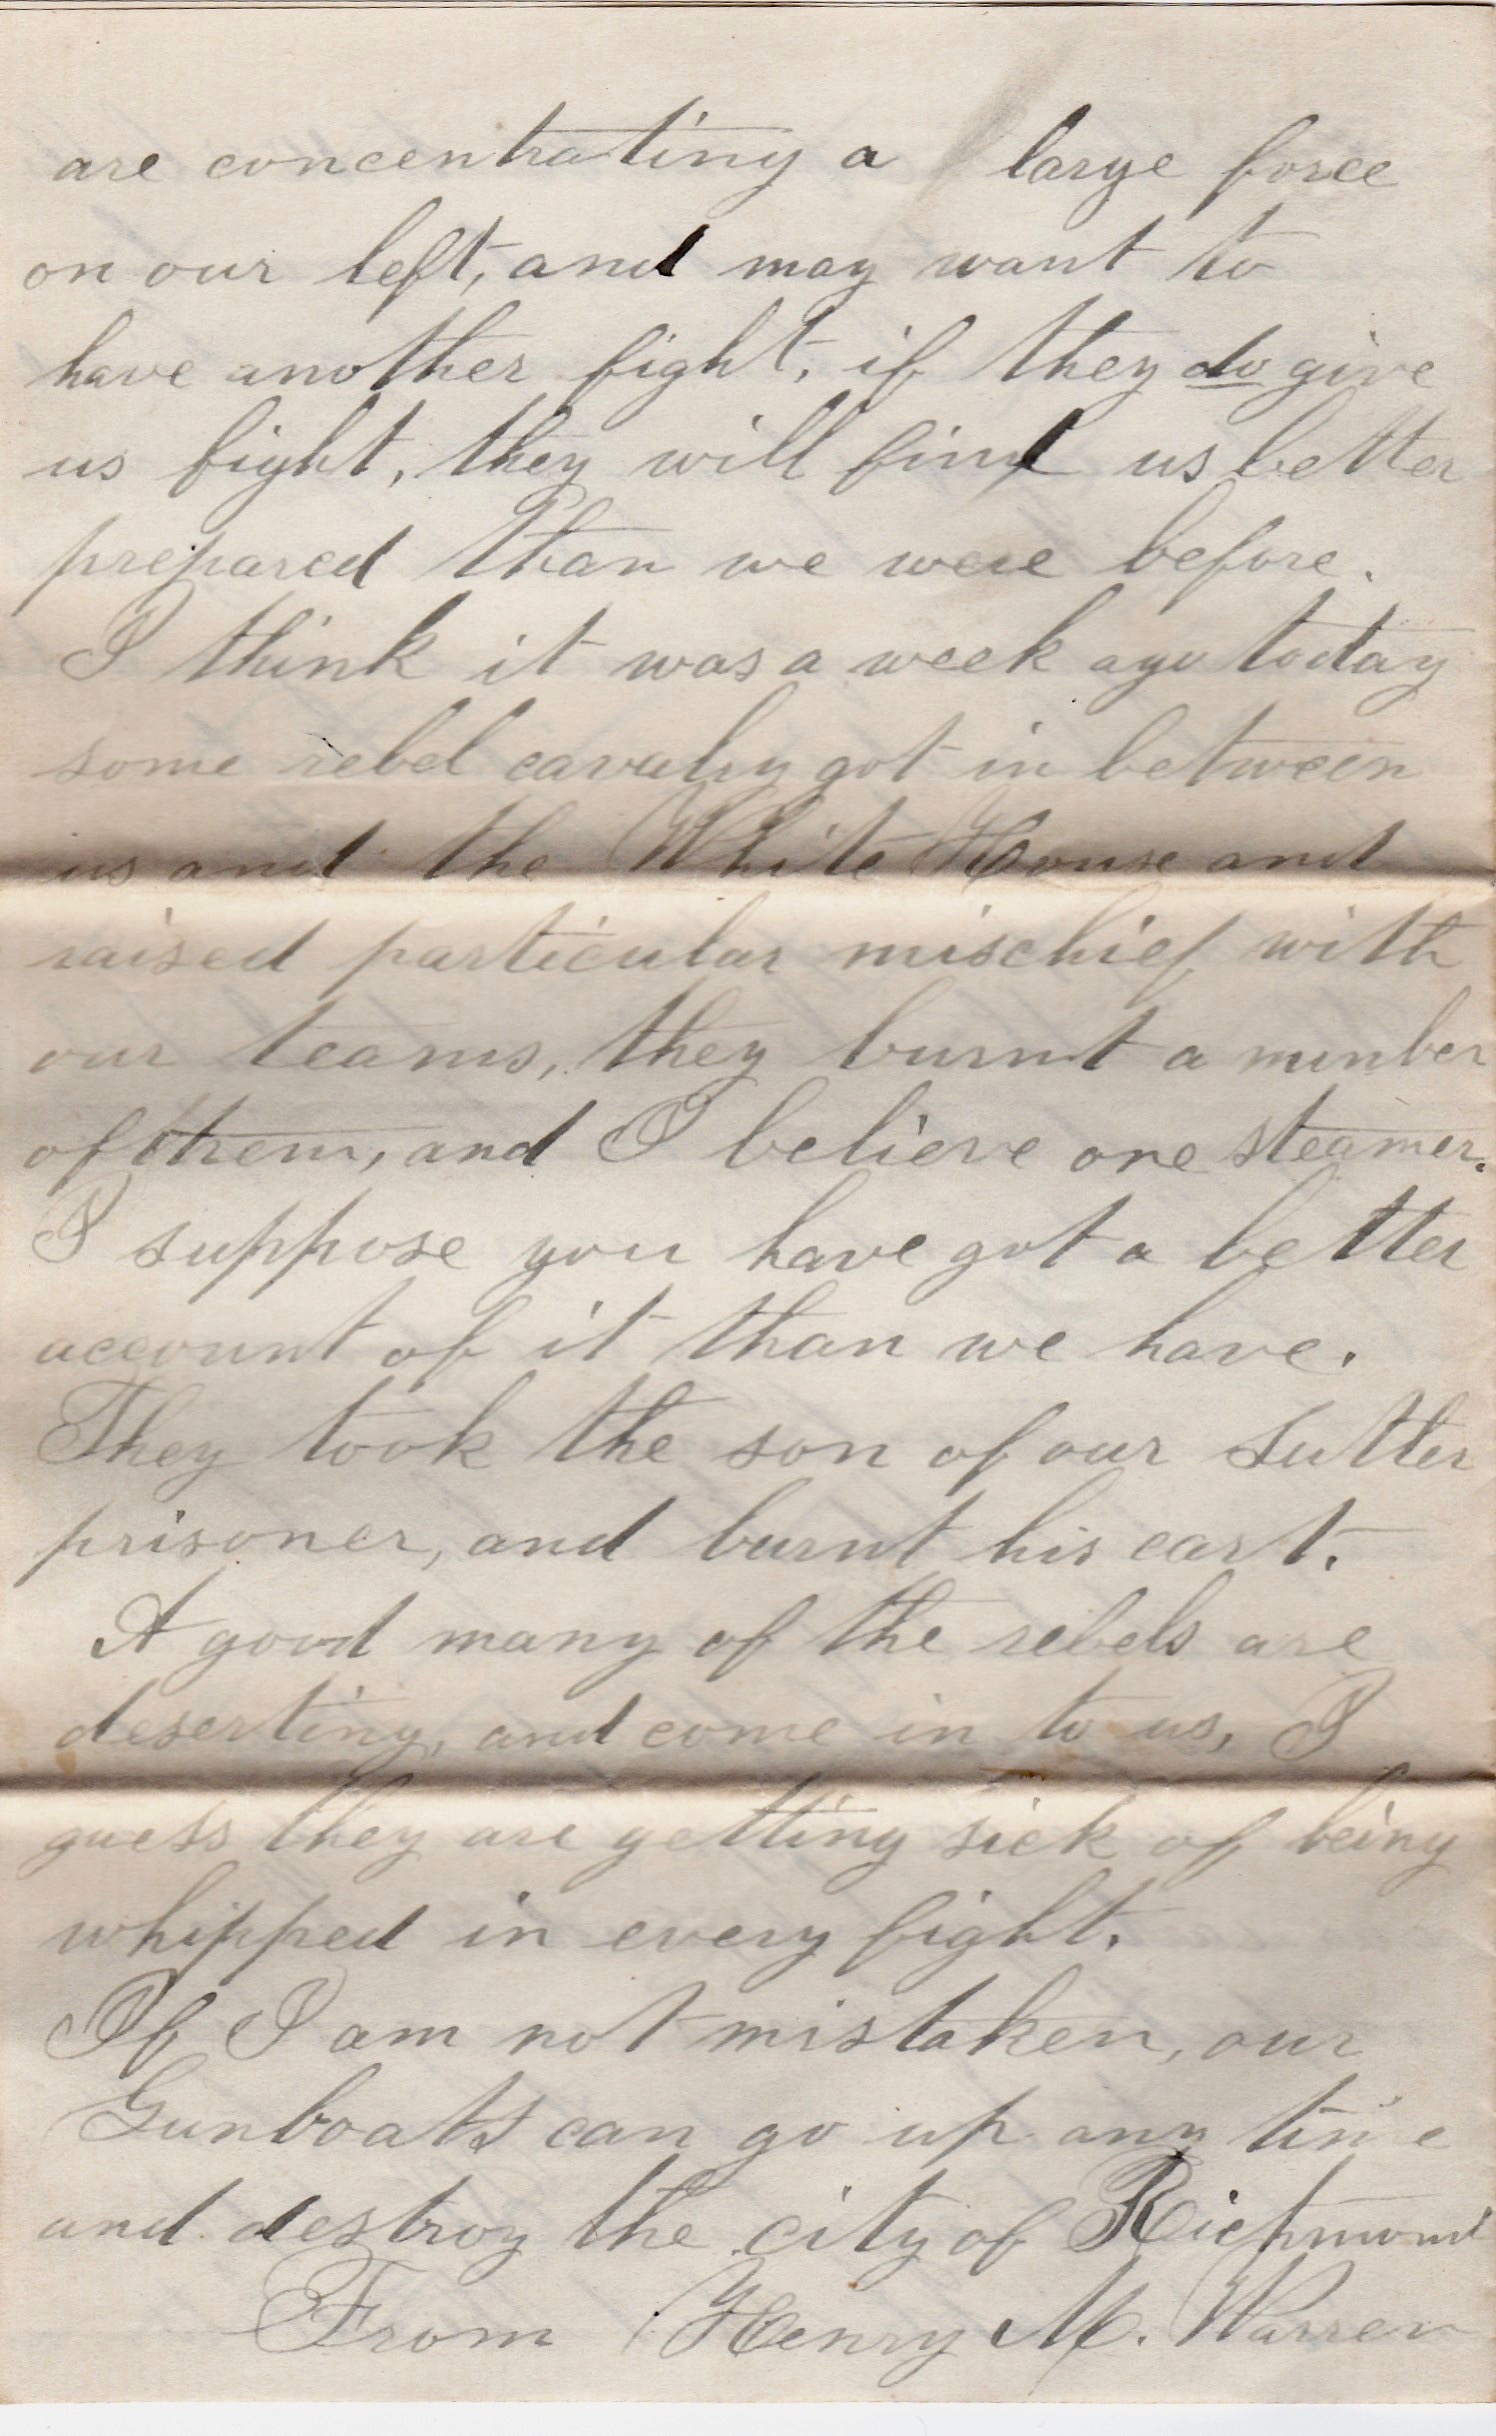 are concentrating a large force
on our left, and may want to
have another fight, if they do give
us fight, they will find us better
prepared than we were before.
I think it was a week ago today
some rebel cavalry got in between
us and the White House and
raised particular mischief with
our teams, they burnt a number
of them, and I believe one steamer.
I suppose you have got a better
account of it than we have.
They took the son of our Sutler
prisoner, and burnt his cart.
A good many of the rebels are
deserting, and come in to us, I
guess they are getting sick of being
whipped in every fight.
If I am not mistaken, our
Gunboats can go up any time
and destroy the city of Richmond
From Henry M. Warren